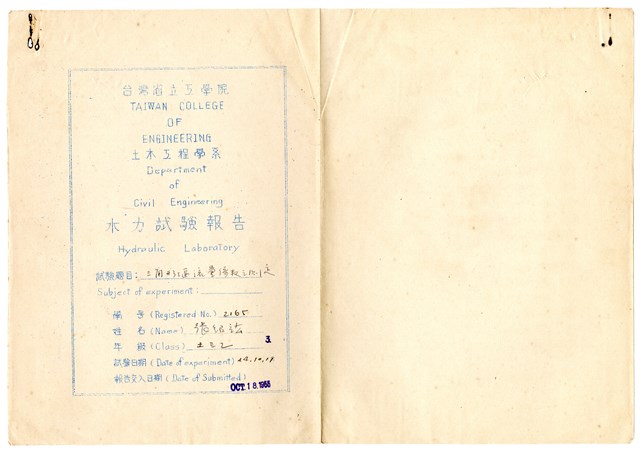 台灣省立工學院
TAIWAN COLLEGE
OF
ENGINEERING
土木工程學系
Department
of
Civil Engineering
水力試驗報告
Hydraulic Laboratory
試驗題目:三角形堰流量係數之測定
Subject of experiment:
編 號 (Registered No.) 2165
姓 名 (Name)
年 級 (Class) 土三乙 3.
試驗日期 (Date of experiment) 44.10.14
報告交入日期 (Date of Submitted)
OCT. 18. 1955